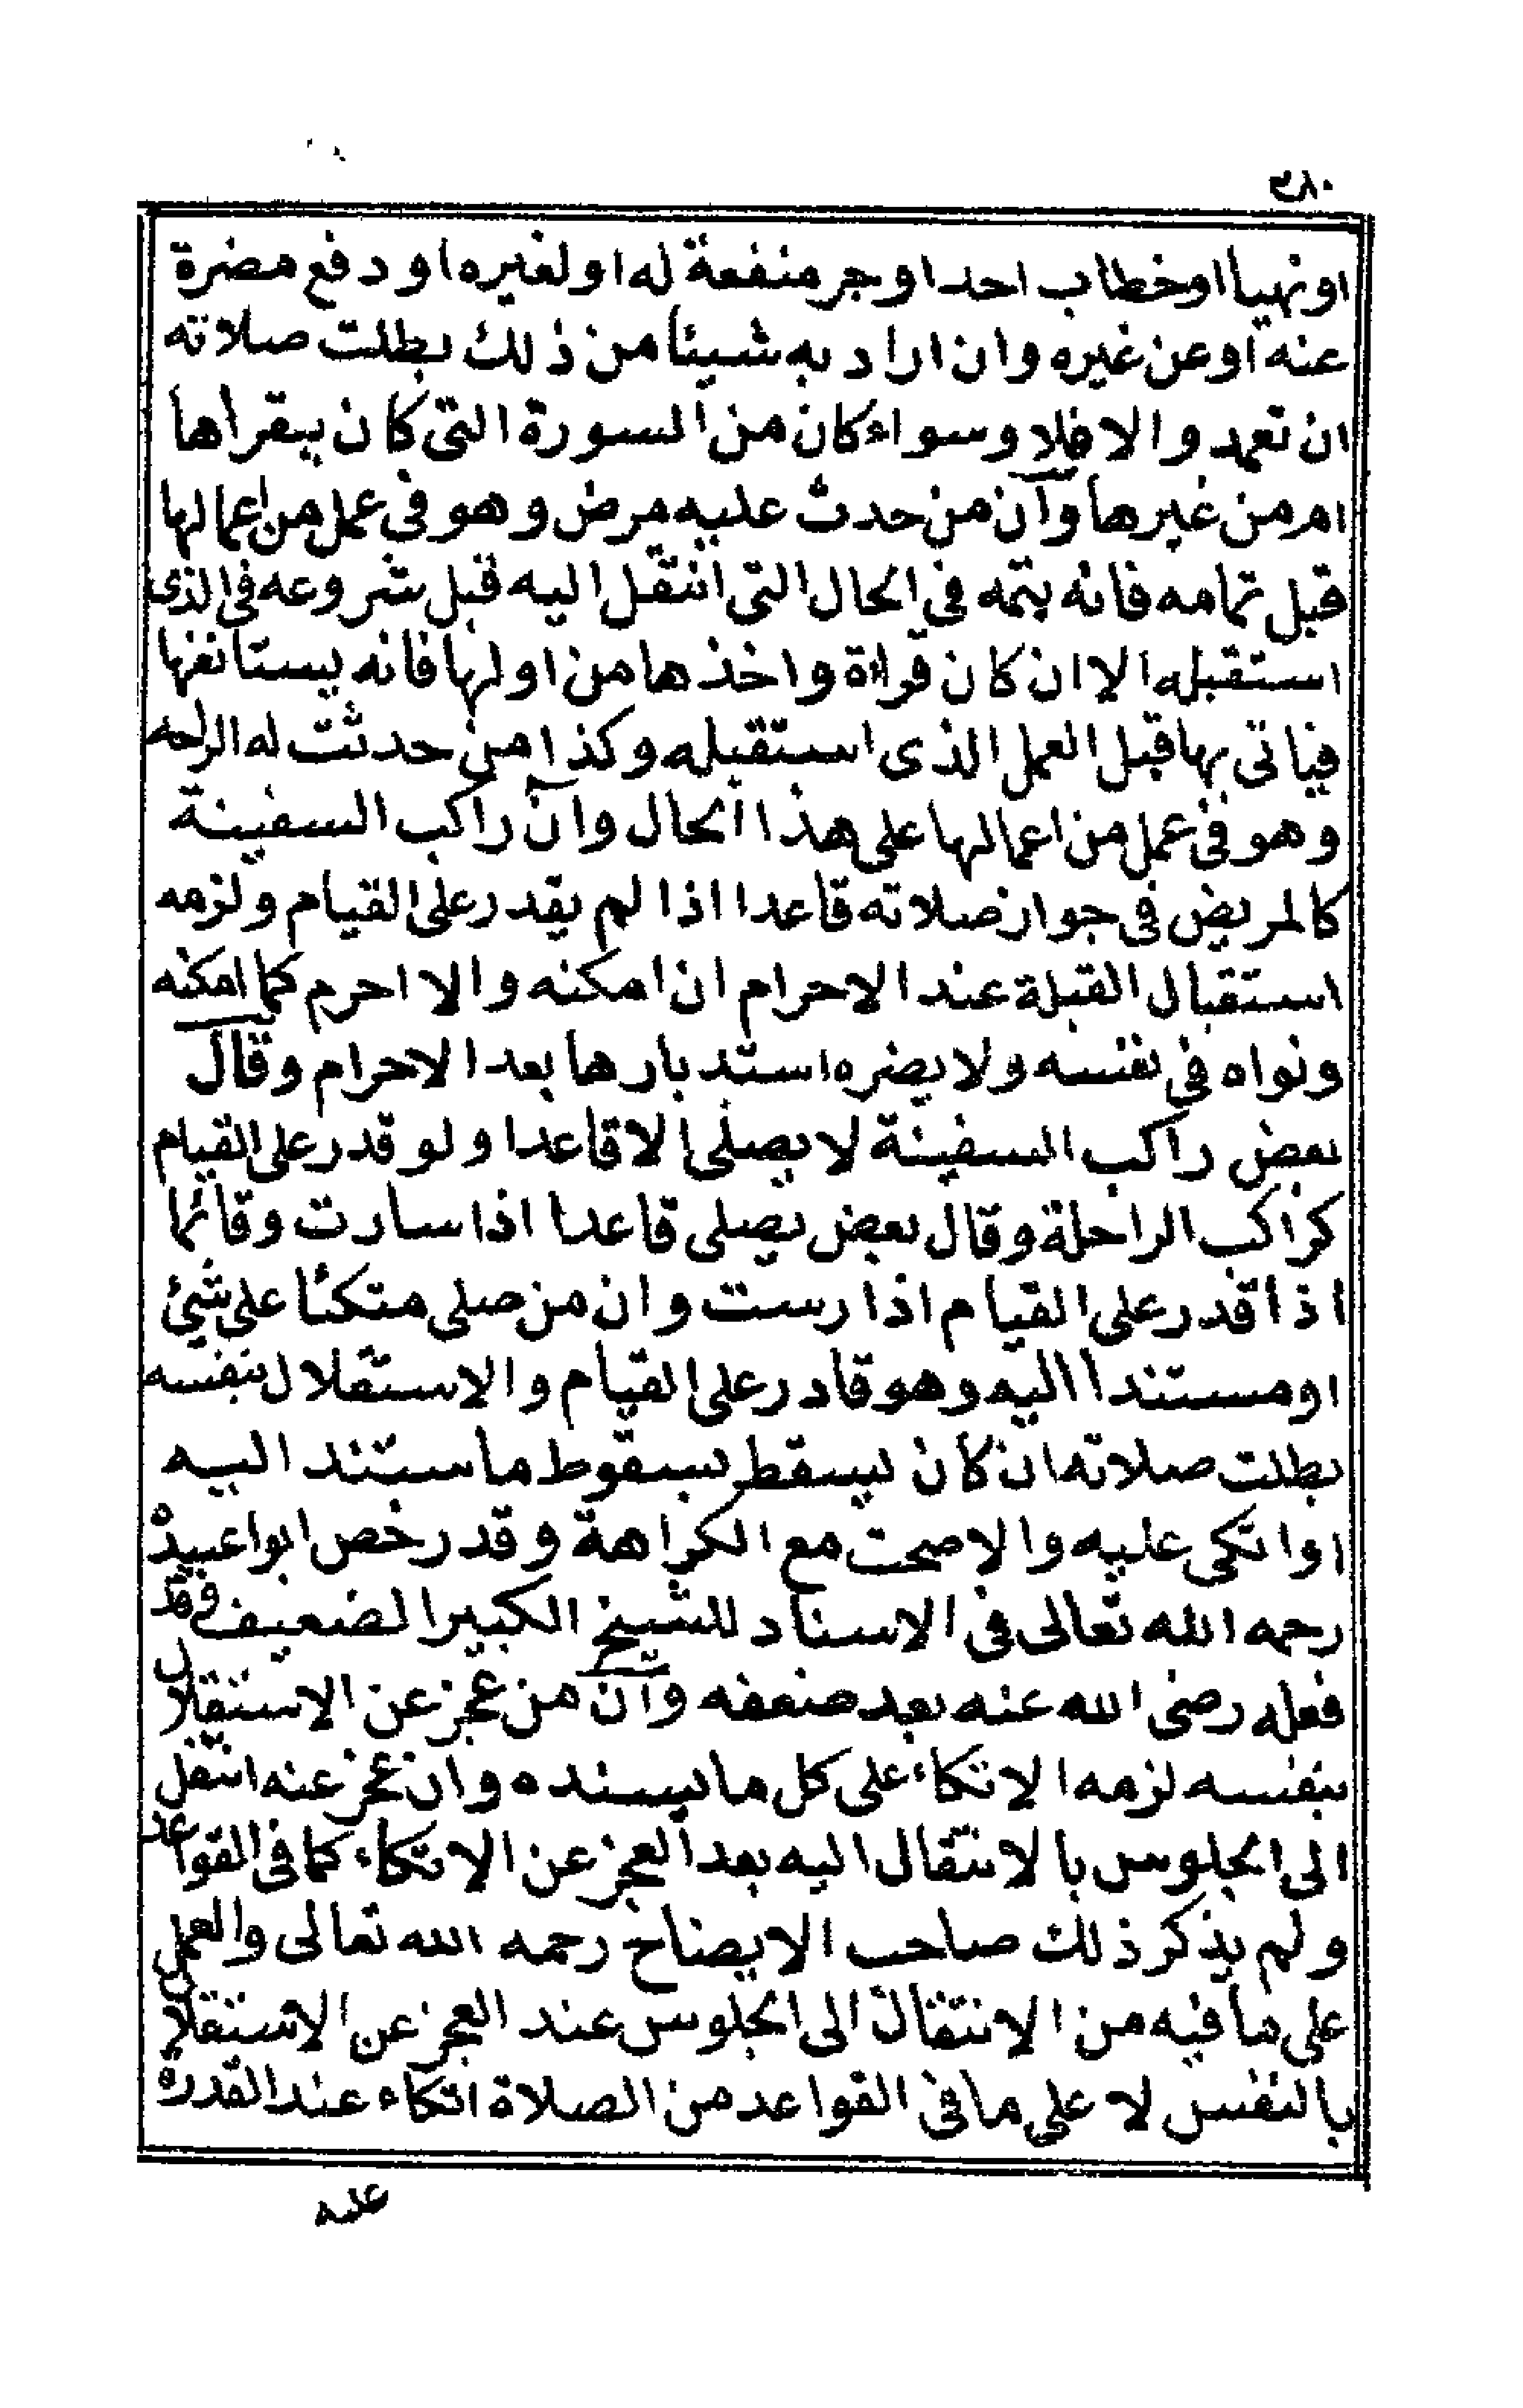 ٣٨٠
اونهيا اوخطاب احد اوجر منفعة له اولغيره اودفع مضرة
عنه اوعن غيره وان اراد به شيئا من ذلك بطلت صلاته
ان تعمد والا فلا وسواء كان من السورة التى كان يقراها
ام من غيرها وان من حدث عليه مرض وهو فى عمل من اعمالها
قبل تمامه فانه يتمه فى الحال التى انتقل اليه قبل شروعه فى الذى
استقبله الا ان كان قراءة واخذها من اولها فانه يستانفها
فياتى بها قبل العمل الذى استقبله وكذا من حدثت له الراحه
وهو فى عمل من اعمالها على هذا الحال وان راكب السفينة
كالمريض فى جواز صلاته قاعدا اذا لم يقدر على القيام ولزمه
استقبال القبلة عند الاحرام ان امكنه والا احرم كما امكنه
ونواه فى نفسه ولا يضره استدبارها بعد الاحرام وقال
بعض راكب السفينة لا يصلى الا قاعدا ولو قدر على القيام
كراكب الراحلة وقال بعض يصلى قاعدا اذا سارت وقائما
اذا قدر على القيام اذا رست وان من صلى متكئا على شئ
اومستندا اليه وهو قادر على القيام والاستقلال بنفسه
بطلت صلاته ان كان يسقط بسقوط ما استند اليه
اواتكى عليه والا صحت مع الكراهة وقد رخص ابواعبيدة
رحمه الله تعالى فى الاسناد للشيخ الكبير الضعيف فقد
فعله رضى الله عنه بعد ضعفه وان من عجز عن الاستقلال
بنفسه لزمه الاتكاء على كل ما يسنده وان عجز عنه انتقل
الى الجلوس بالانتقال اليه بعد العجز عن الاتكاء كما فى القواعد
ولم يذكر ذلك صاحب الايضاح رحمه الله تعالى والعمل
على ما فيه من الانتقال الى الجلوس عند العجز عن الاستقلال
بالنفس لا على ما فى القواعد من الصلاة اتكاء عند القدرة
عليه